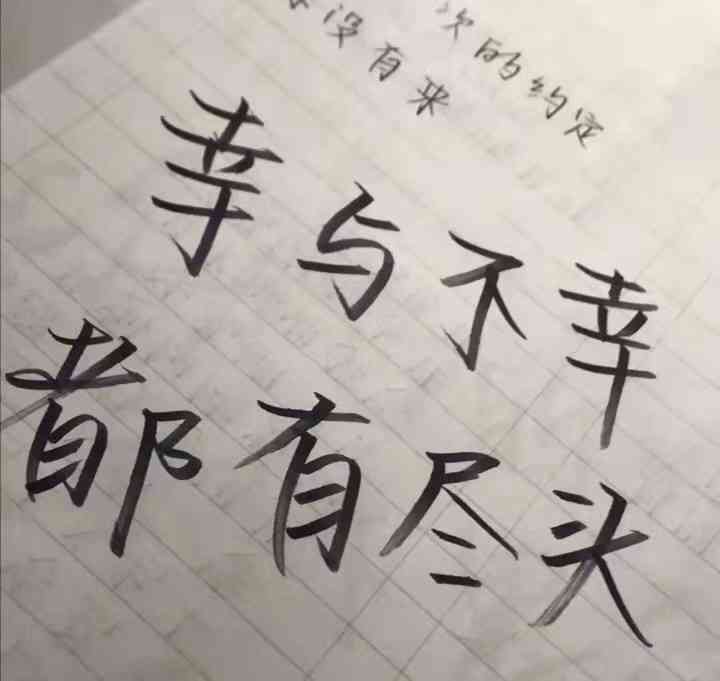 次的约定
没有来
幸与不幸
都有尽头